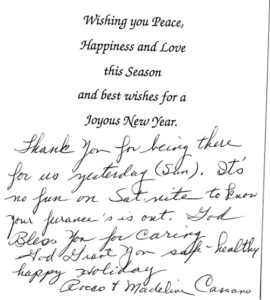 Wishing you Peace,
Happiness and Love
this Season
and best wishes for a
Joyous New Year.
Thank You for being there
for us yesterday (Sun). It's
no fun on Sat. nite to know
your furance's is out. God
Bless You for Caring
God Grant You safe - healthy
happy Holiday
Rocco & Madeline Cassano